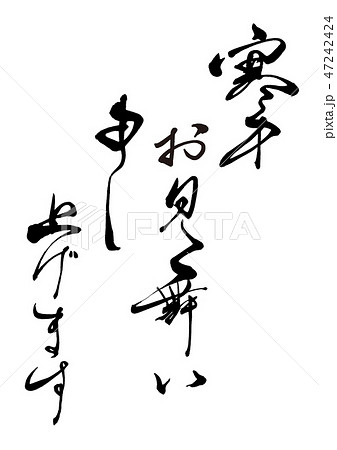 寒中
お見舞い
申し
上げます
PIXTA
pixta.jp - 47242424